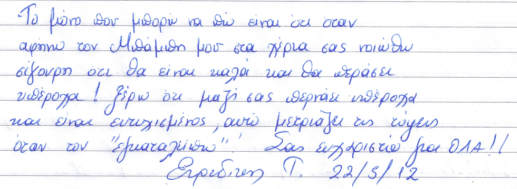 Το μόνο που μπορώ να πω είναι ότι όταν
αφήνω τον Μπάμπη μου στα χέρια σας νοιώθω
σίγουρη ότι θα είναι καλά και θα περάσει
υπέροχα! Ξέρω ότι μαζί σας περνάει υπέροχα
και είναι ευτυχισμένος, αυτό μετριάζει τις τύψεις
όταν τον "εγκαταλείπω" Σας ευχαριστώ για ΟΛΑ!!
Ευριδίκη Τ. 22/5/12